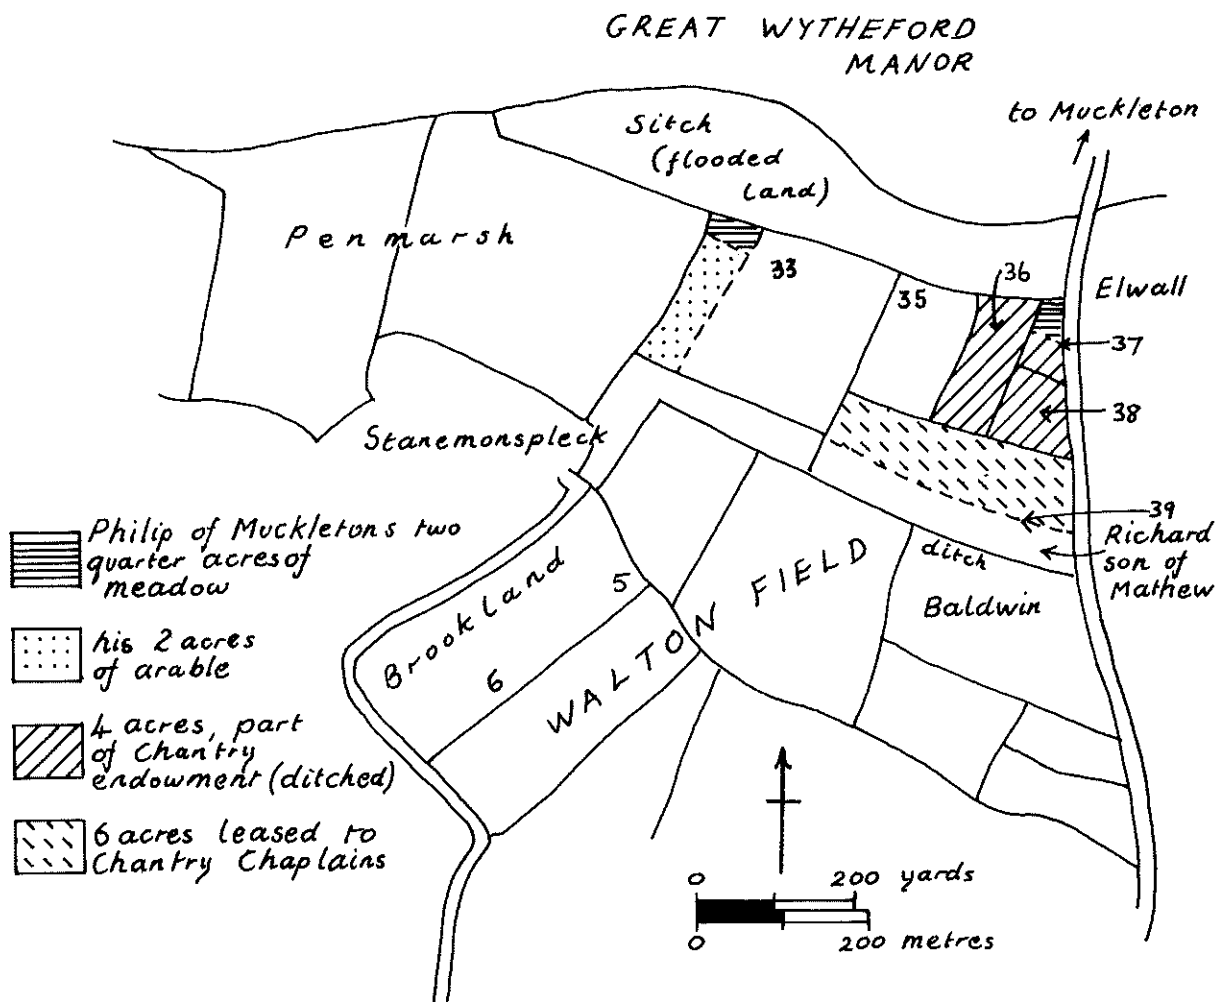 GREAT WYTHEFORD
MANOR
to Muckleton
Sitch
(flooded
land)
Penmarsh
33
35
36
Elwall
37
38
Stanemonspleck
39
Richard
son of
Mathew
ditch
Baldwin
Brookland
5
6
WALTON FIELD
Philip of Muckletons two
quarter acres of
meadow
his 2 acres
of arable
4 acres, part
of Chantry
endowment (ditched)
6 acres leased to
Chantry Chaplains
0 200 yards
0 200 metres